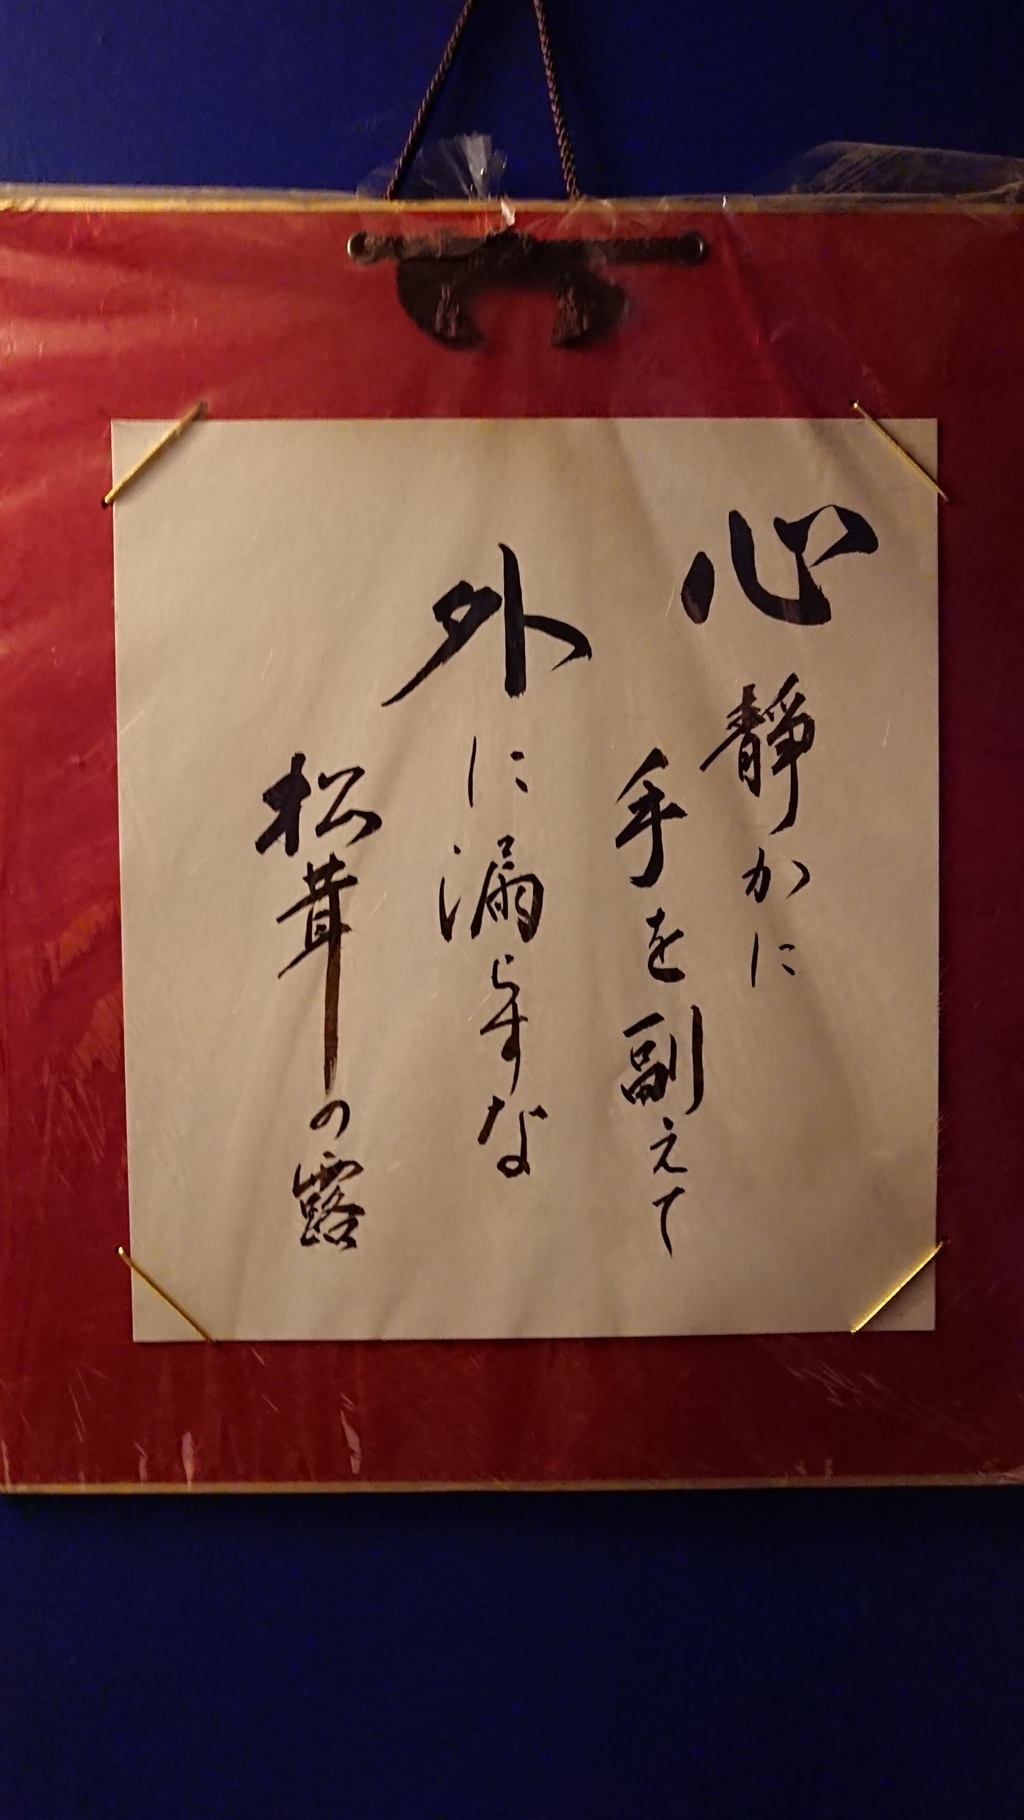 心靜かに
手を副えて
外に漏らすな
松茸の露